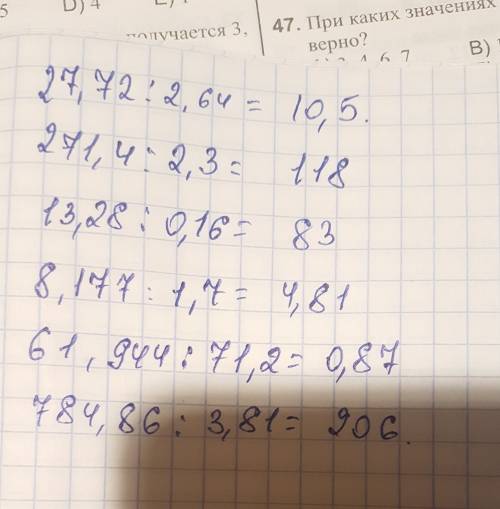 5 D) 4
получается 3,
47. При каких значениях
верно?
B)
27,72 : 2,64 = 10,5.
271,4 : 2,3 = 118
13,28 : 0,16 = 83
8,177 : 1,7 = 4,81
61,944 : 71,2 = 0,87
784,86 : 3,81 = 206.